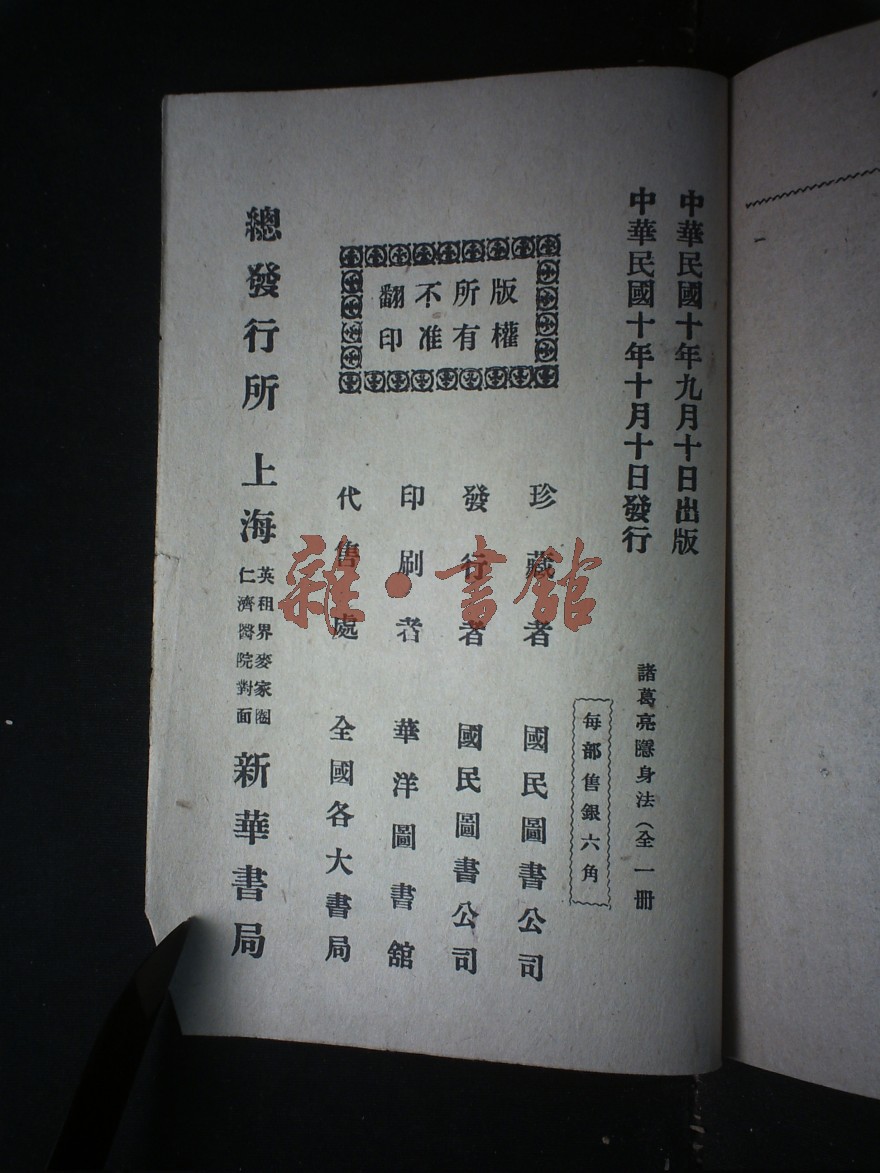 中華民國十年九月十日出版
中華民國十年十月十日發行
諸葛亮隱身法(全一冊
每部售銀六角
版權
所有
不准
翻印
珍藏者 國民圖書公司
發行者 國民圖書公司
印刷者 華洋圖書舘
代售處 全國各大書局
總發行所 上海
英租界麥家圈
仁濟醫院對面
新華書局
雜·書舘